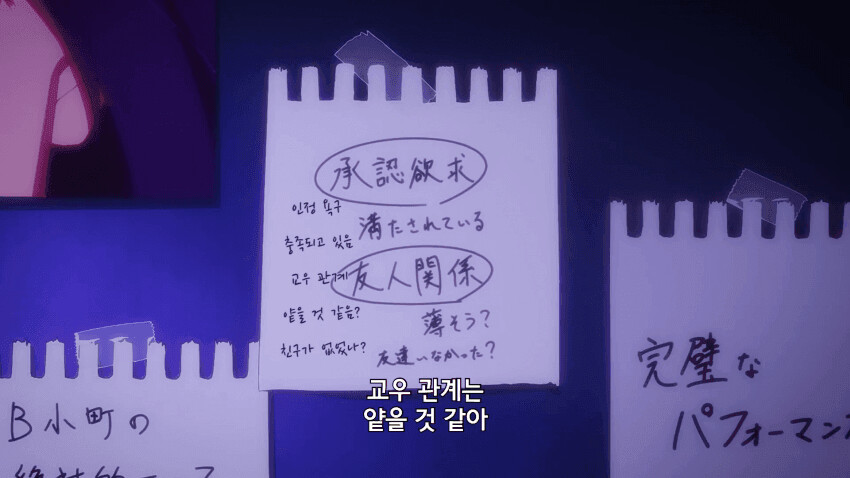 承認欲求
인정 욕구
満たされている
충족되고 있음
友人関係
교우 관계
薄そう?
얕을 것 같음?
友達いなかった?
친구가 없었나?
B小町の
完璧な
パフォーマンス
교우 관계는
얕을 것 같아